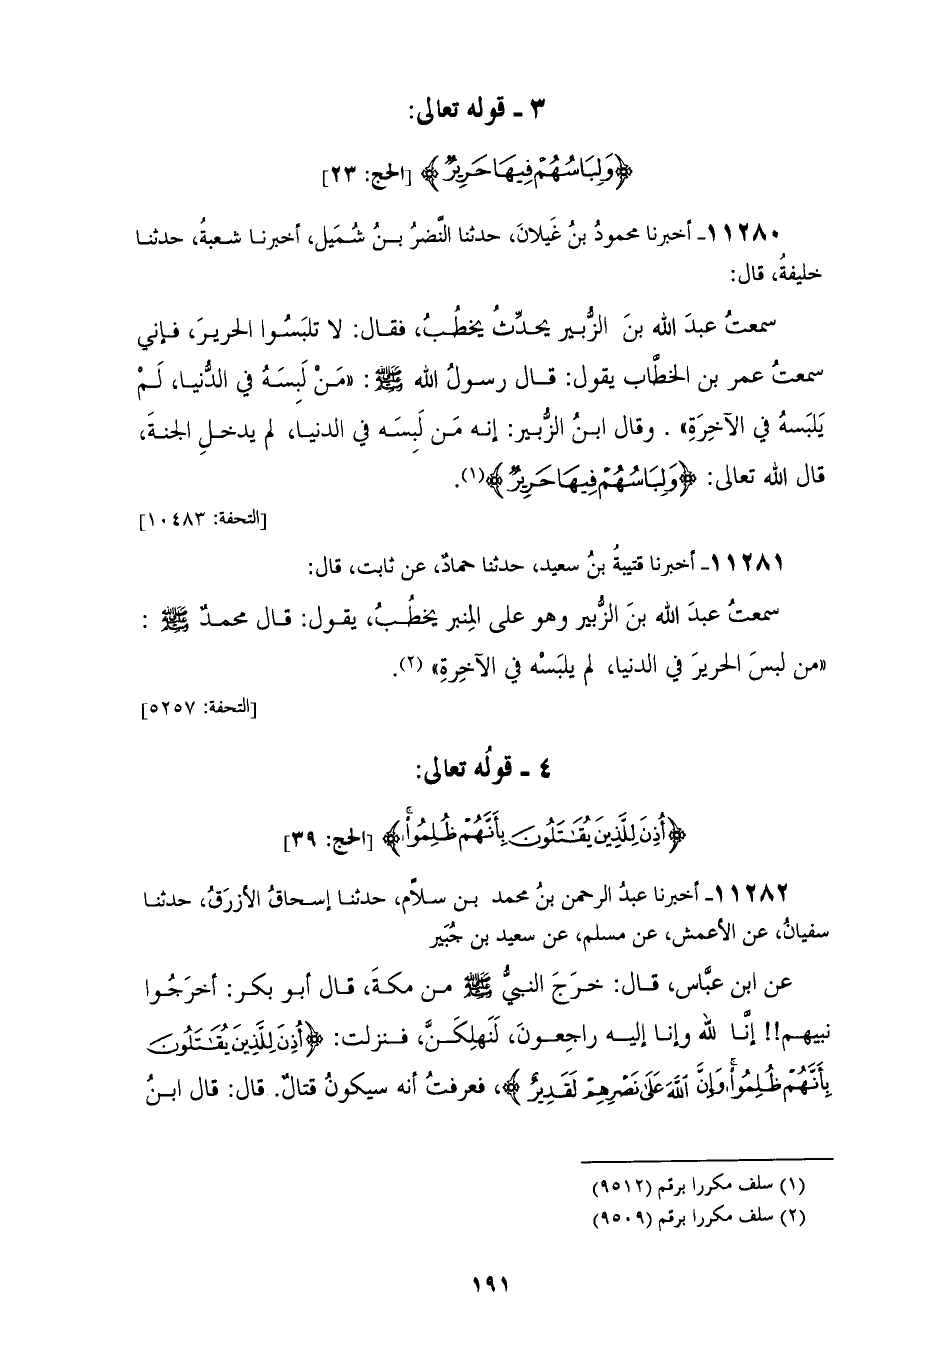 ٣ ـ قوله تعالى:
﴿وَلِبَاسُهُمْ فِيهَا حَرِيرٌ﴾ [الحج: ٢٣]
١١٢٨٠ـ أخبرنا محمودُ بنُ غَيلانَ، حدثنا النَّضرُ بنُ شُمَيل، أخبرنا شعبةُ، حدثنا
خليفةُ، قال:
سمعتُ عبدَ الله بنَ الزُّبير يحدِّثُ يخطُبُ، فقال: لا تلبَسُوا الحريرَ، فإني
سمعتُ عمر بن الخطَّاب يقول: قال رسولُ الله ﷺ: «مَنْ لَبِسَهُ في الدُّنيا، لَمْ
يَلبَسهُ في الآخِرَةِ» . وقال ابنُ الزُّبير: إنه مَن لَبِسَه في الدنيا، لم يدخلِ الجنةَ،
قال الله تعالى: ﴿وَلِبَاسُهُمْ فِيهَا حَرِيرٌ﴾(١).
[التحفة: ١٠٤٨٣]
١١٢٨١ـ أخبرنا قتيبةُ بنُ سعيد، حدثنا حمادٌ، عن ثابت، قال:
سمعتُ عبدَ الله بنَ الزُّبير وهو على المِنبر يخطُبُ، يقول: قال محمدٌ ﷺ :
«من لبسَ الحريرَ في الدنيا، لم يلبَسْه في الآخِرةِ» (٢).
[التحفة: ٥٢٥٧]
٤ ـ قولُه تعالى:
﴿أُذِنَ لِلَّذِينَ يُقَاتَلُونَ بِأَنَّهُمْ ظُلِمُواْ﴾ [الحج: ٣٩]
١١٢٨٢ـ أخبرنا عبدُ الرحمن بنُ محمد بن سلاَّم، حدثنا إسحاقُ الأزرَقُ، حدثنا
سفيانُ، عن الأعمش، عن مسلم، عن سعيد بن جُبَير
عن ابن عبَّاس، قال: خرَجَ النبيُّ ﷺ من مكةَ، قال أبو بكر: أخرَجُوا
نبيهم!! إنَّا لله وإنا إليه راجِعونَ، لَنَهلِكَنَّ، فنزلت: ﴿أُذِنَ لِلَّذِينَ يُقَاتَلُونَ
بِأَنَّهُمْ ظُلِمُواْ وَإِنَّ اللَّهَ عَلَى نَصْرِهِمْ لَقَدِيرٌ﴾، فعرفتُ أنه سيكونُ قتالٌ. قال: قال ابنُ
(١) سلف مكررا برقم (٩٥١٢)
(٢) سلف مكررا برقم (٩٥٠٩)
١٩١